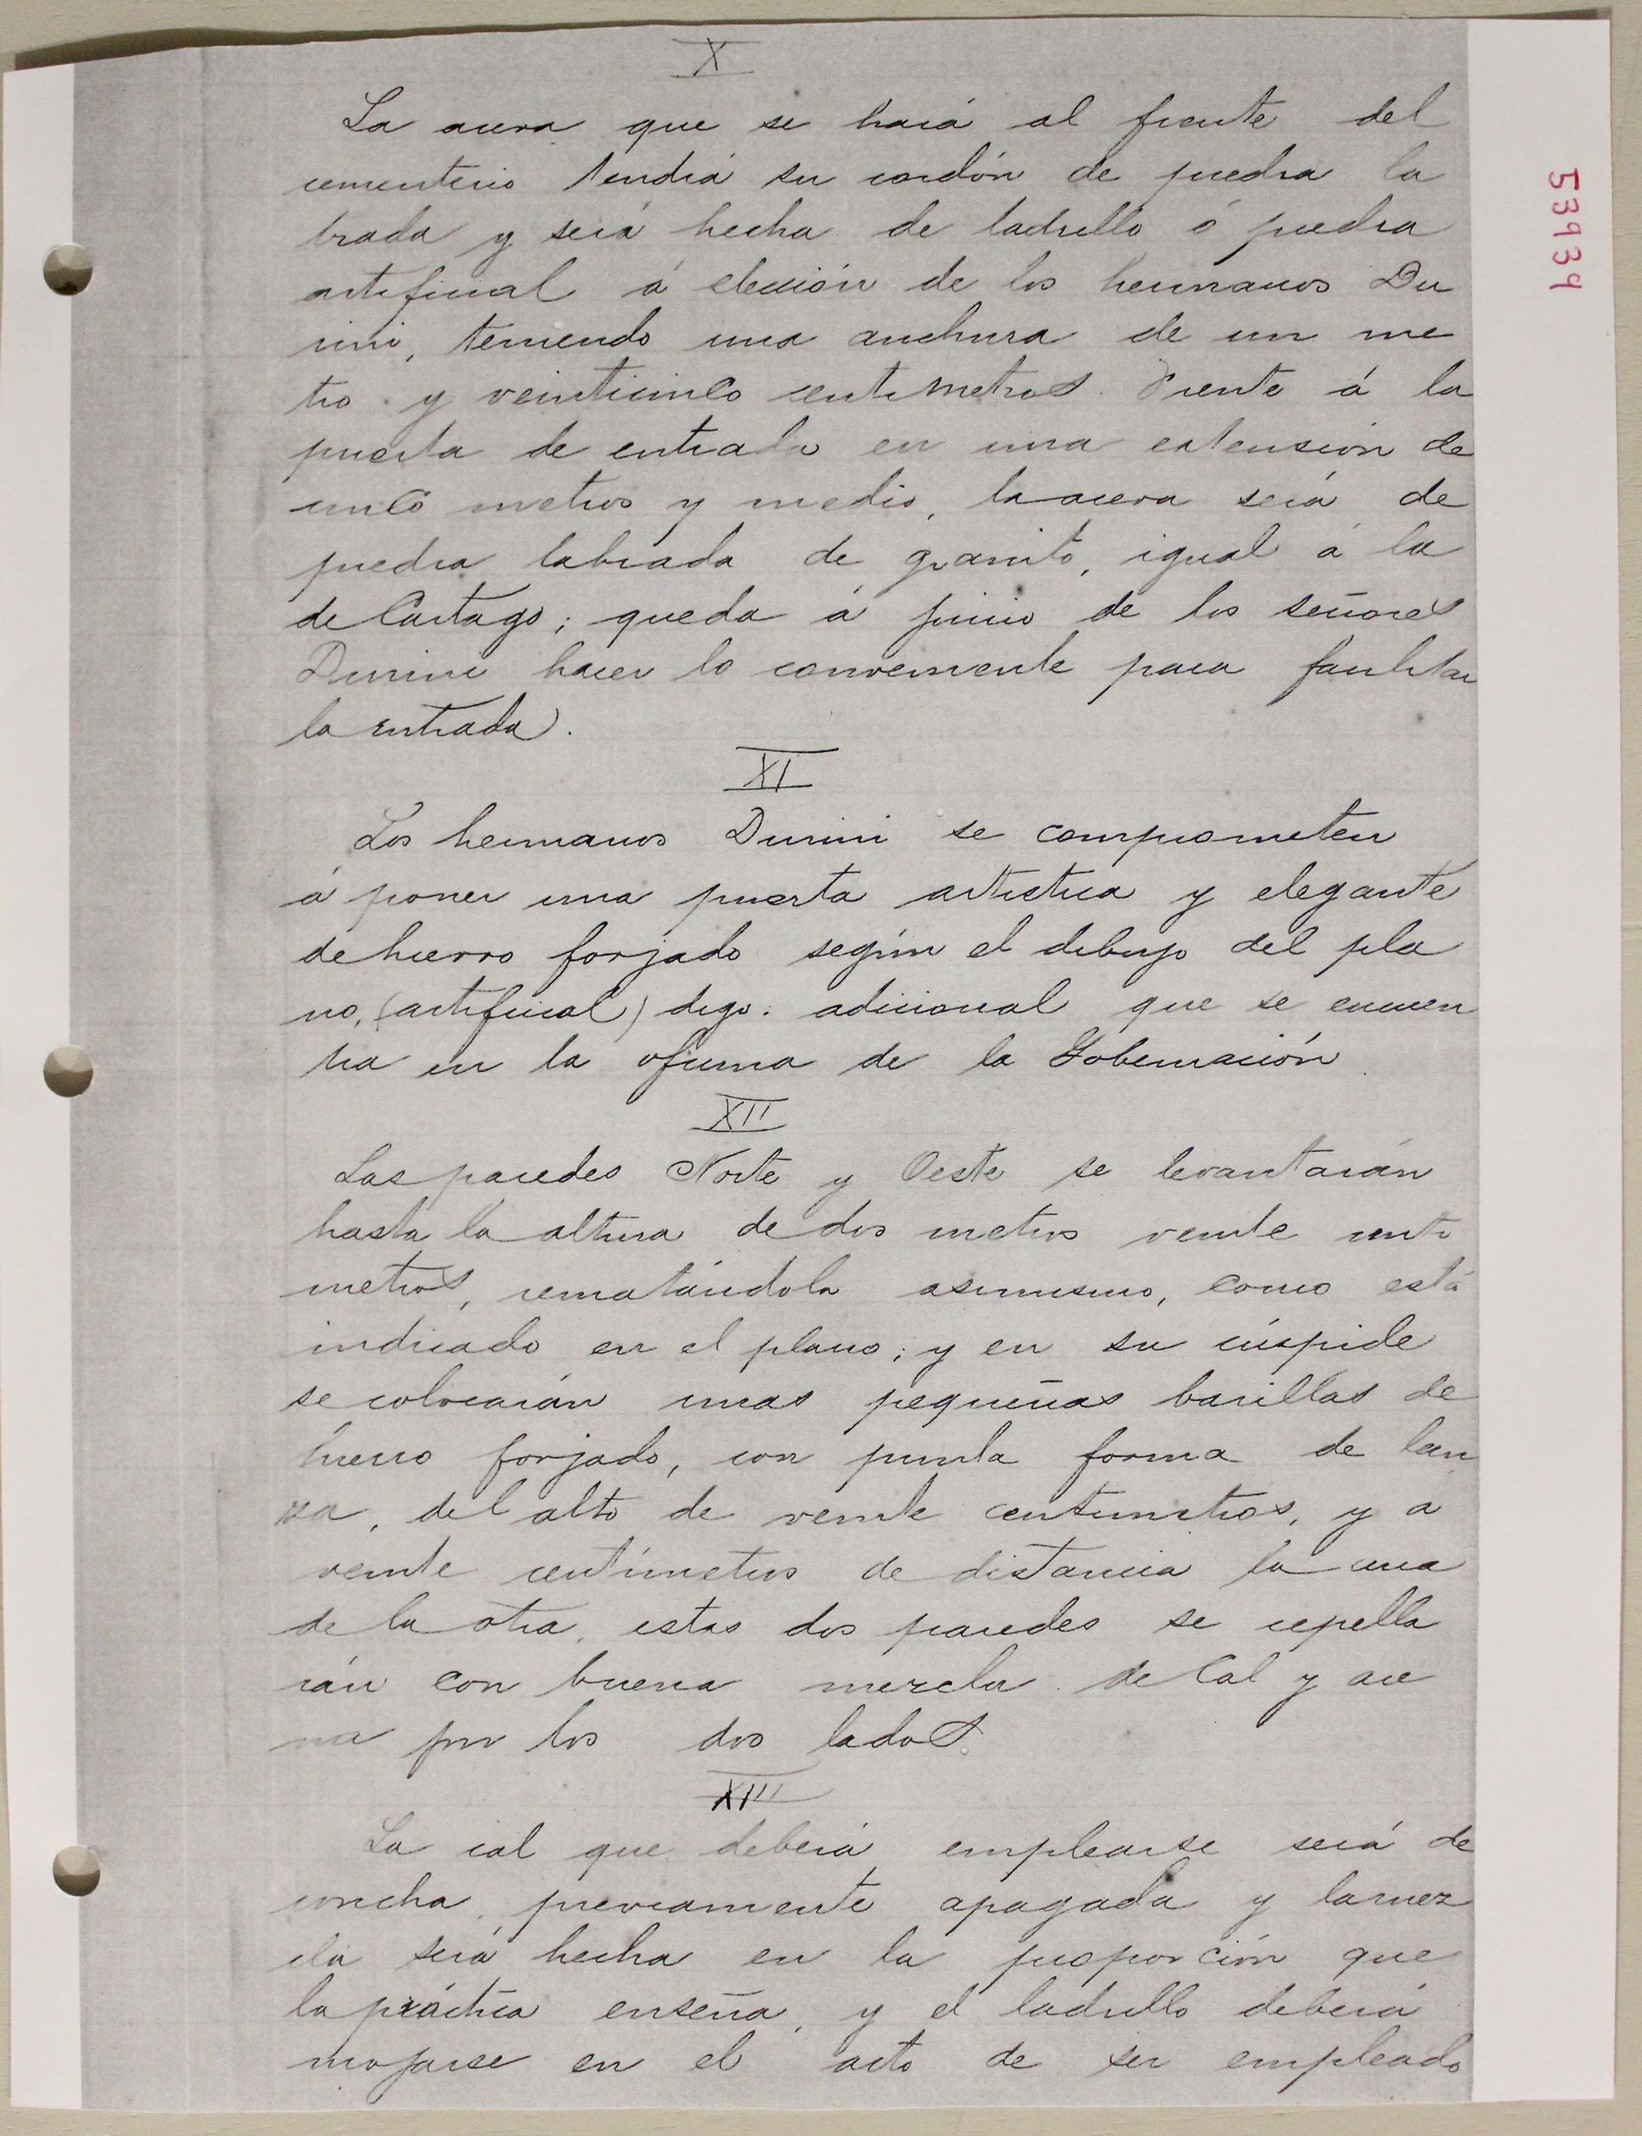 X
La acera que se hará al frente del
cementerio tendrá su cordón de piedra la
brada y será hecha de ladrillo ó piedra
artificial á elección de los hermanos Du
rini, teniendo una anchura de un me
tro y veinticinco centimetros. Frente á la
puerta de entrada en una extensión de
cinco metros y medio, la acera será de
piedra labrada de granito, igual á la
de Cartago; queda á juicio de los señores
Durini hacer lo conveniente para facilitar
la entrada.
XI
Los hermanos Durini se comprometen
á poner una puerta artistica y elegante
de hierro forjado según el dibujo del pla
no, (artificial) digo: adicional que se encuen
tra en la oficina de la Gobernación.
XII
Las paredes Norte y Oeste se levantarán
hasta la altura de dos metros veinte centi
metros, rematándola asimismo, como está
indicado en el plano; y en su cúspide
se colocarán unas pequeñas barillas de
hierro forjado, con punta forma de lan
za, del alto de veinte centimetros, y a
veinte centímetros de distancia la una
de la otra, estas dos paredes se repella
rán con buena mezcla de Cal y are
na por los dos lados.
XIII
La cal que deberá emplearse será de
concha, previamente apagada y la mez
cla será hecha en la proporción que
la práctica enseña, y el ladrillo deberá
mojarse en el acto de ser empleado
53939